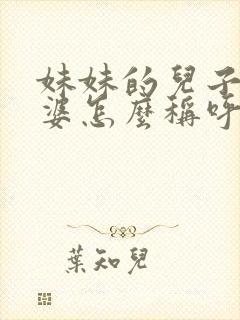 妹妹的兒子
婆怎麼稱呼
葉知兒